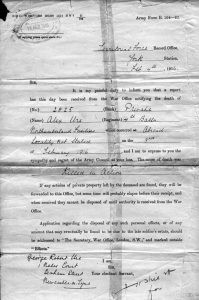 Army Form B. 104—82.
Territorial Force Record Office,
York Station.
Feb 1916.
SIR,
It is my painful duty to inform you that a report
has this day been received from the War Office notifying the death of
(No.) 2825 (Rank) Private
(Name) Alex Ure (Regiment) Battn
Northumberland Fusiliers which occurred at Abroad
Locality Not Stated on the 2nd
of February 1916, and I am to express to you the
sympathy and regret of the Army Council at your loss. The cause of death was
Killed in Action
If any articles of private property left by the deceased are found, they will be
forwarded to this Office, but some time will probably elapse before their receipt, and when
received they cannot be disposed of until authority is received from the War
Office.
Application regarding the disposal of any such personal effects, or of any
amount that may eventually be found to be due to the late soldier's estate, should
be addressed to "The Secretary, War Office, London, S.W.," and marked outside
"Effects"
George Robert Ure
Court
I am,
Your obedient Servant,
Newcastle on Tyne